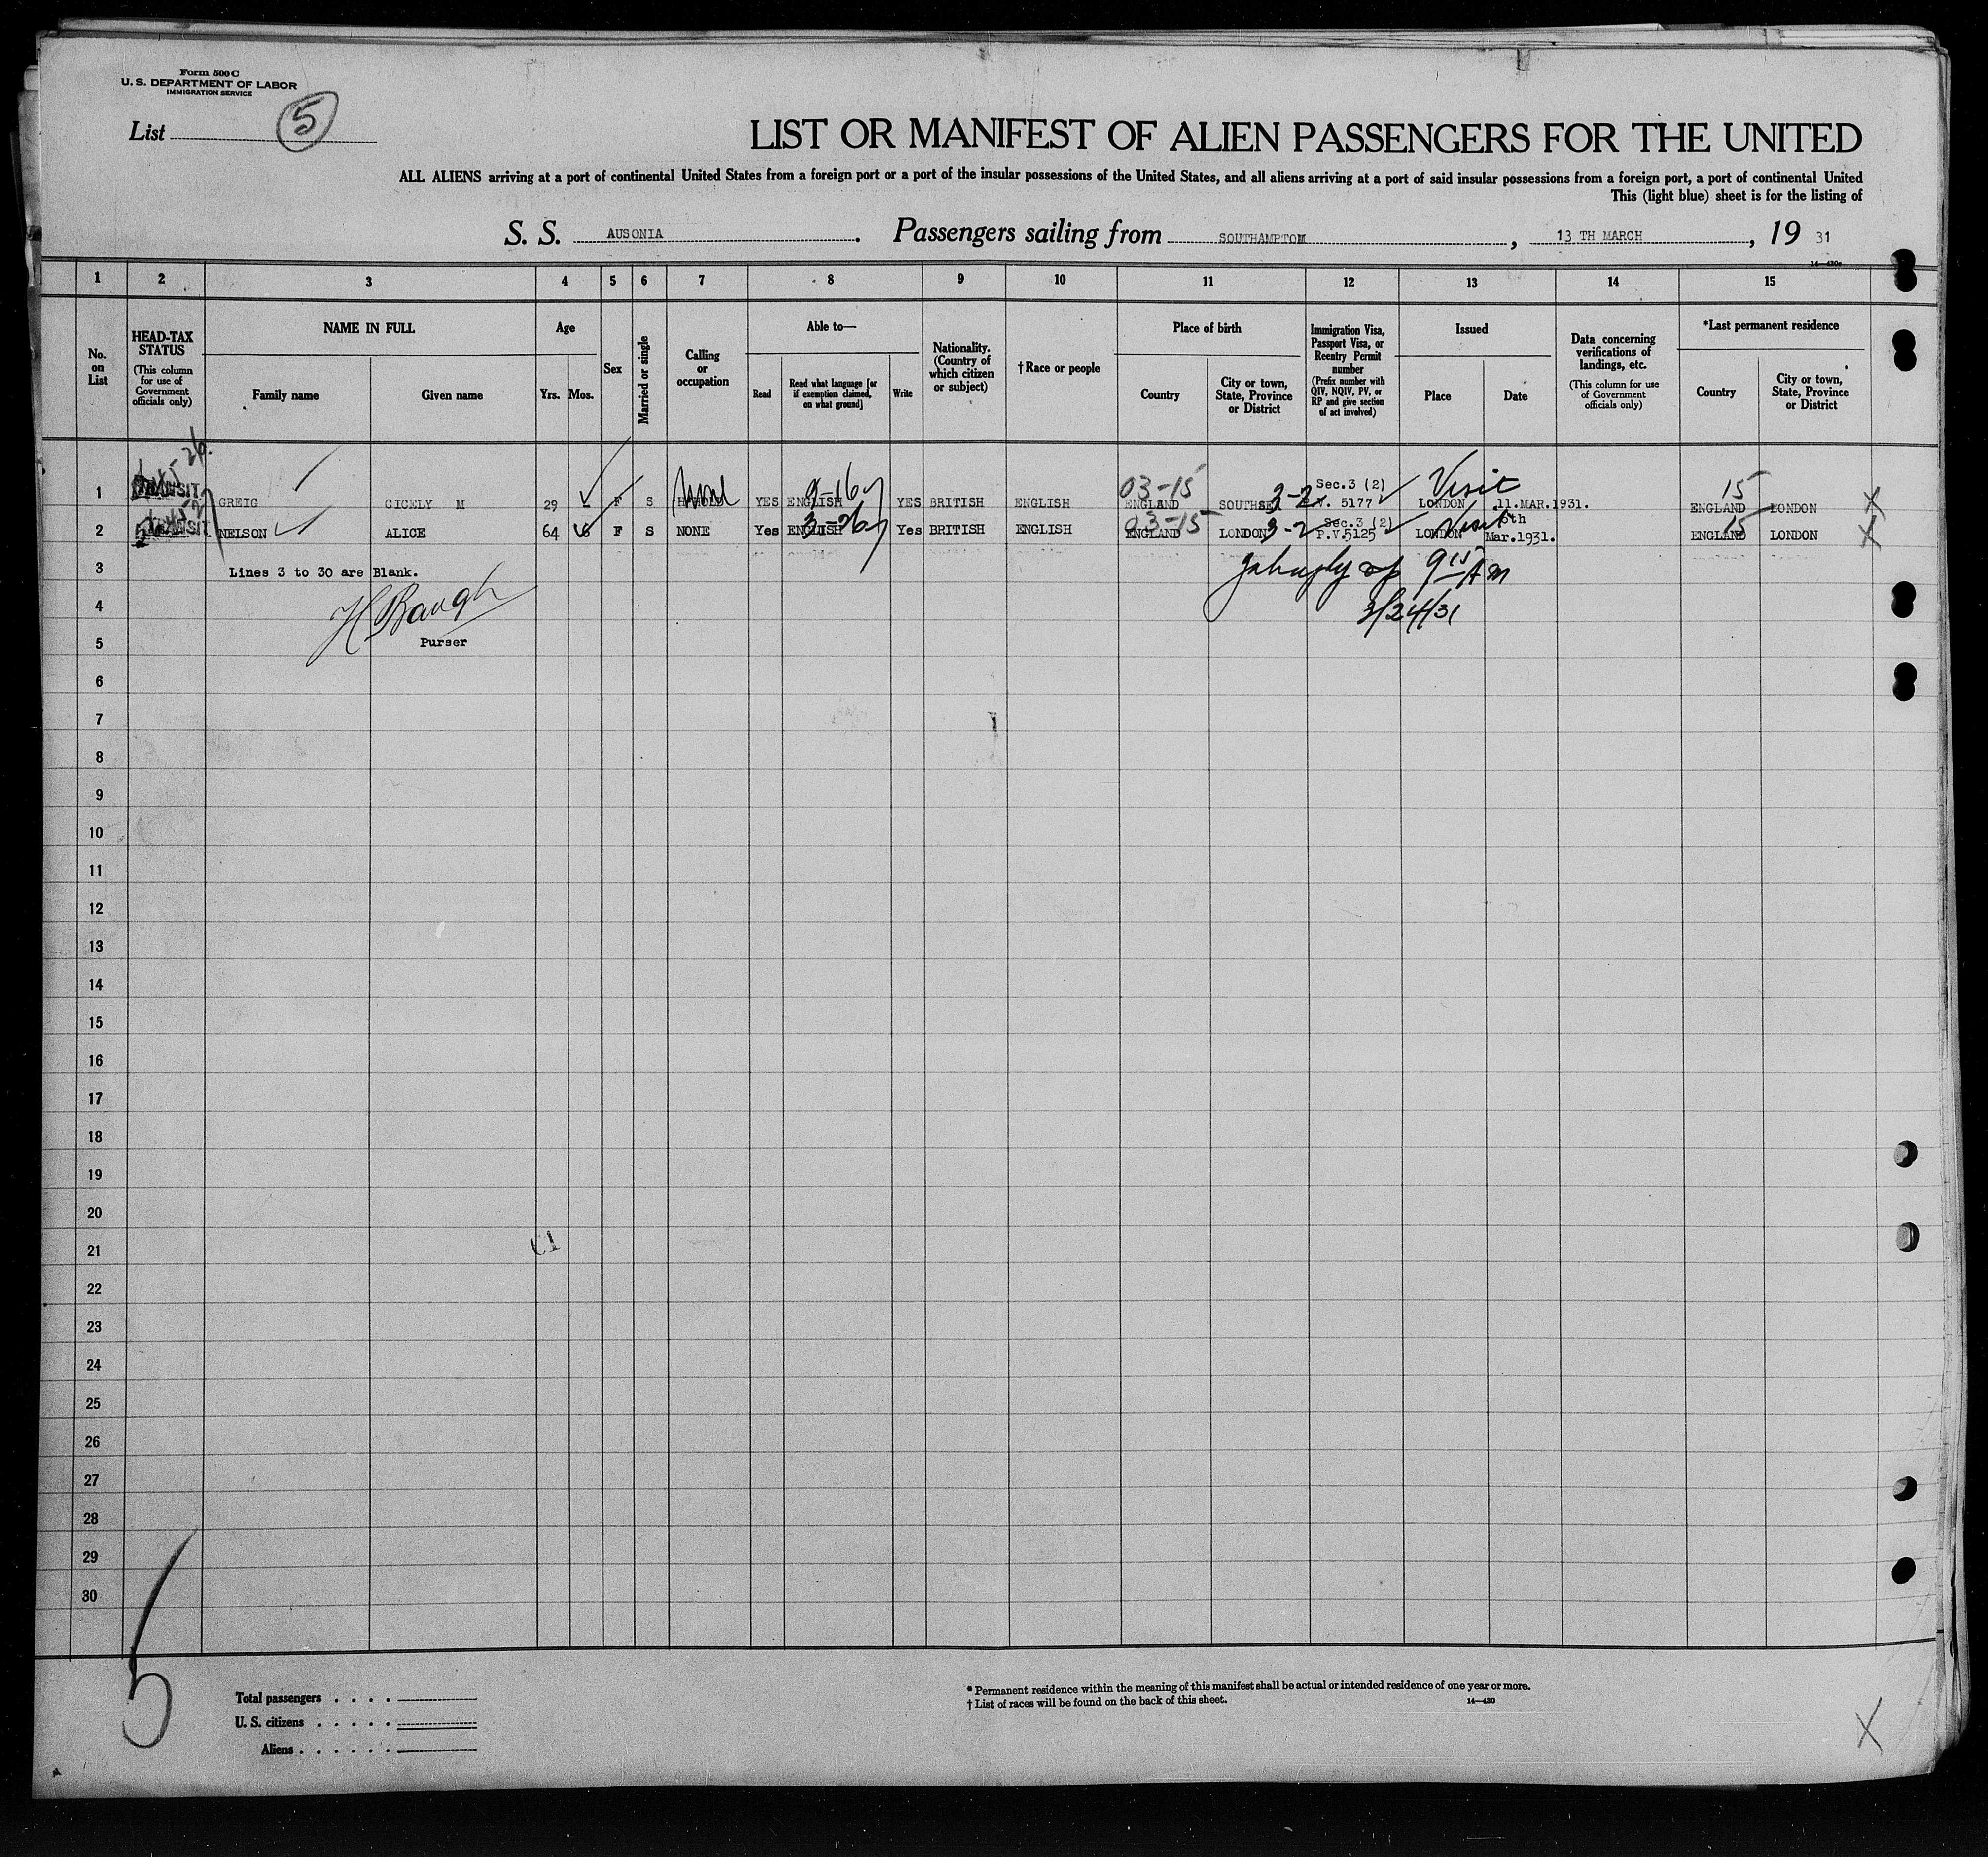 Form 500 C
U. S. DEPARTMENT OF LABOR
IMMIGRATION SERVICE
List 5
LIST OR MANIFEST OF ALIEN PASSENGERS FOR THE UNITED
ALL ALIENS arriving at a port of continental United States from a foreign port or a port of the insular possessions of the United States, and all aliens arriving at a port of said insular possessions from a foreign port, a port of continental United
This (light blue) sheet is for the listing of
S. S. AUSONIA. Passengers sailing from SOUTHAMPTON, 13 TH MARCH, 19 31
1 2 3 4 5 6 7 8 9 10 11 12 13 14 15
No. on List
HEAD-TAX STATUS
(This column for use of Government officials only)
NAME IN FULL
Family name Given name
Age
Yrs. Mos.
Sex
Married or single
Calling or occupation
Able to—
Read
Read what language [or if exemption claimed, on what ground]
Write
Nationality. (Country of which citizen or subject)
†Race or people
Place of birth
Country
City or town, State, Province or District
Immigration Visa, Passport Visa, or Reentry Permit number
(Prefix number with QIV, NQIV, PV, or RP and give section of act involved)
Issued
Place Date
Data concerning verifications of landings, etc.
(This column for use of Government officials only)
*Last permanent residence
Country
City or town, State, Province or District
03-15 Sec.3 (2) Visit 15
1 TRANSIT GREIG CICELY M 29 F S YES ENGLISH YES BRITISH ENGLISH ENGLAND SOUTHSEA 3-2 5177 LONDON 11.MAR.1931. ENGLAND LONDON X
03-15 3-26 Sec.3 (2) Visit 15
2 TRANSIT NELSON ALICE 64 6 F S NONE Yes ENGLISH Yes BRITISH ENGLISH ENGLAND LONDON 3-2 P.V.5125 LONDON Mar.1931. ENGLAND LONDON X
3 Lines 3 to 30 are Blank. 9 15 AM
4 H Baugh 3/24/31
5 Purser
6
7
8
9
10
11
12
13
14
15
16
17
18
19
20
21
22
23
24
25
26
27
28
29
30
5
Total passengers . . . .
U. S. citizens . . . . .
Aliens . . . . . .
* Permanent residence within the meaning of this manifest shall be actual or intended residence of one year or more.
† List of races will be found on the back of this sheet. 14—430
X